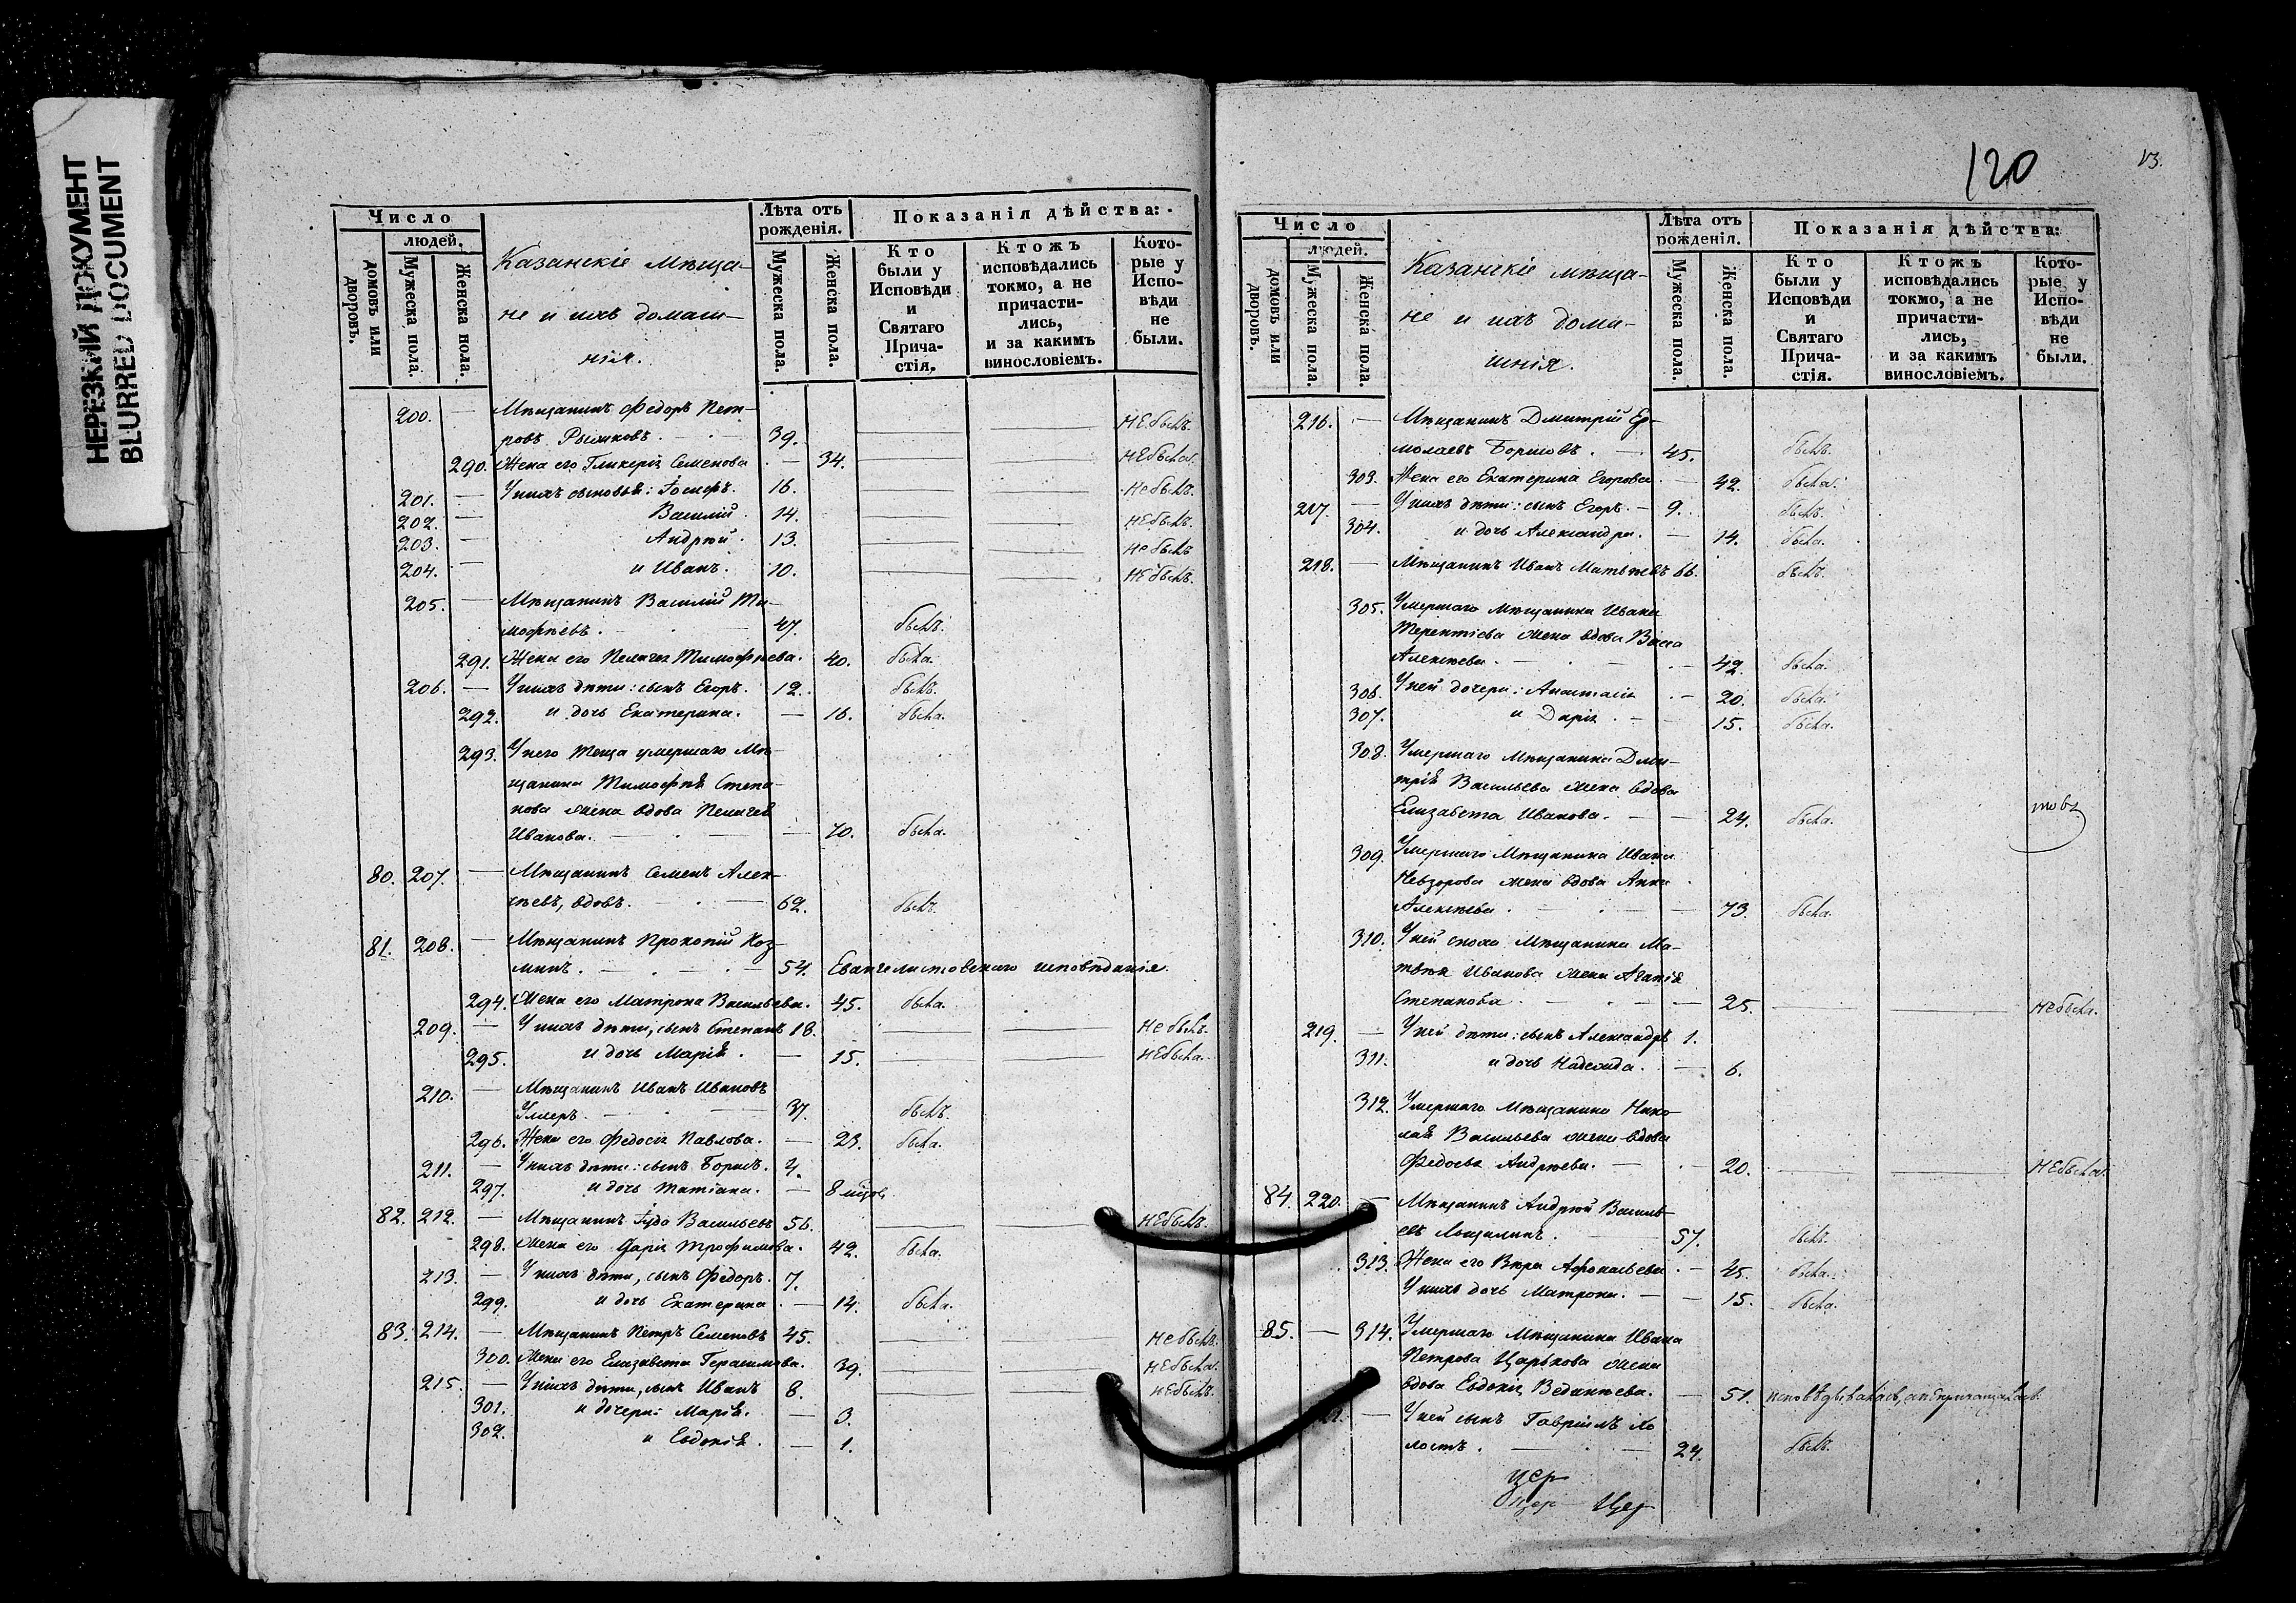 НЕРЕЗКИЙ ДОКУМЕНТ
BLURRED DOCUMENT
Число
Лѣта отъ рожденія.
Показанія дѣйства:
домовъ или дворовъ.
людей.
Мужеска пола.
Женска пола.
Казанскіе мѣща-
не и ихъ домаш-
нія.
Мужеска пола.
Женска пола.
Кто были у Исповѣди и Святаго Прича-стія.
Ктожъ исповѣдались токмо, а не причасти-лись, и за какимъ винословіемъ.
Кото-рые у Испо-вѣди не были.
200. — Мѣщанинъ Федоръ Пет-
ровъ 39. небылъ.
290. Жена его Гликерія Семенова — 34. небыла.
201. — У нихъ сыновья: Іосифъ. 16. небылъ.
202. — Василій. 14. небылъ.
203. — Андрей. 13. небылъ
204. — и Иванъ. 10. небылъ.
205. — Мѣщанинъ Василій Ти-
мофѣевъ. 47. былъ.
291. Жена его Пелагея Тимофѣева. 40. была.
206. — У нихъ дѣти: сынъ Егоръ. 12. былъ.
292. и дочь Екатерина. — 16. была.
293. У него теща умершаго мѣ-
щанина Тимофѣя Степа-
нова жена вдова Пелагея
Иванова. — 70. была.
80. 207. — Мѣщанинъ Семенъ Алек-
ѣевъ, вдовъ. 62. былъ.
81. 208. — Мѣщанинъ Прокопій Коз-
минъ. 54. Евангелистовскаго исповѣданія.
294. Жена его Матрона Васильева. 45. была.
209. — У нихъ дѣти, сынъ Степанъ 18. небылъ.
295. и дочь Марія. — 15. небыла.
210. — Мѣщанинъ Иванъ Ивановъ
37. былъ.
296. Жена его Федосія Павлова. — 23. была.
211. — У нихъ дѣти: сынъ Борисъ. 4.
297. и дочь Татіана. — 8 мцов.
82. 212. — Мѣщанинъ Іуда Васильевъ 56. небылъ.
298. Жена его Дарія Трофимова. 42. была.
213. — У нихъ дѣти, сынъ Федоръ. 7.
299. и дочь Екатерина. — 14. была.
83. 214. — Мѣщанинъ Петръ Семеновъ 45. небылъ.
300. Жена его Елизавета Герасимова. 39. небыла.
215. — У нихъ дѣти, сынъ Иванъ 8. небылъ.
301. и дочери: Марія. — 3.
302. и Евдокія. — 1.
120
13.
Число
Лѣта отъ рожденія.
Показанія дѣйства:
домовъ или дворовъ.
людей.
Мужеска пола.
Женска пола.
Казанскіе мѣща-
не и ихъ дома-
шнія.
Мужеска пола.
Женска пола.
Кто были у Исповѣди и Святаго Прича-стія.
Ктожъ исповѣдались токмо, а не причасти-лись, и за какимъ винословіемъ.
Кото-рые у Испо-вѣди не были.
216. — Мѣщанинъ Дмитрій Ер-
молаевъ 45. былъ.
303. Жена его Екатерина Егорова — 42. была.
217. — У нихъ дѣти: сынъ Егоръ. — 9. былъ.
304. и дочь Александра. — 14. была.
218. — Мѣщанинъ Иванъ Матвѣевъ 66. былъ.
305. Умершаго мѣщанина Ивана
Терентіева жена вдова Васса
Алексѣева. — 42. была.
306. У ней дочери: Анастасія — 20. была.
307. и Дарія. — 15. была.
308. Умершаго мѣщанина Дми-
трія Васильева жена вдова
Елизавета Иванова. — 24. была.
309. Умершаго мѣщанина Ивана
Невзорова жена вдова Анна
Алексѣева. — 73. была.
310. У ней сноха мѣщанина Ма-
твѣя Иванова жена Агапія
Степанова. — 25. небыла.
219. — У ней дѣти: сынъ Александръ 1.
311. и дочь Надежда. — 6.
312. Умершаго мѣщанина Нико-
лая Васильева жена вдова
Федосья Андреева. — 20. небыла.
84. 220. — Мѣщанинъ Андрей Василь-
евъ 57. былъ.
313. Жена его Вѣра Афонасьева. — 45. была.
У нихъ дочь Матрона. — 15. была.
85. — 314. Умершаго мѣщанина Ивана
Петрова Царькова жена
вдова Евдокія — 51. исповѣдывалась, а непричащалась.
— У ней сынъ Гавріилъ хо
лостъ. 24. былъ.
цер
цер Цер